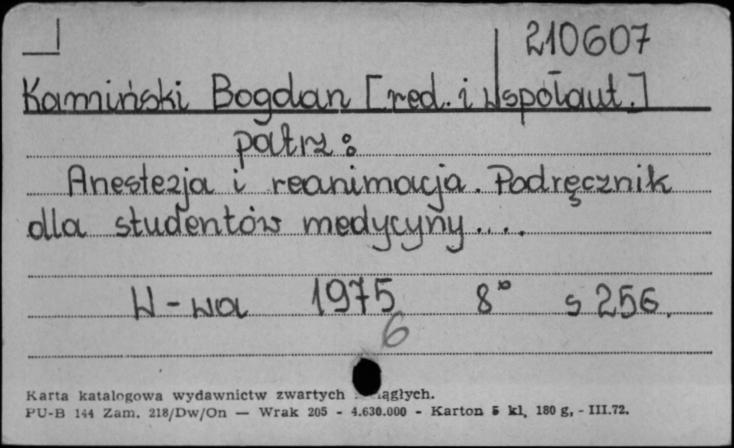 210607
Kamiński Bogdan [red. i współaut.]
patrz:
Anestezja i reanimacja. Podręcznik
dla studentów medycyny....
W-wa 1975 8° s 256.
6
Karta katalogowa wydawnictw zwartych ciągłych.
PU-B 144 Zam. 218/Dw/On — Wrak 205 - 4.630.000 - Karton 5 kl, 180 g, - III.72.